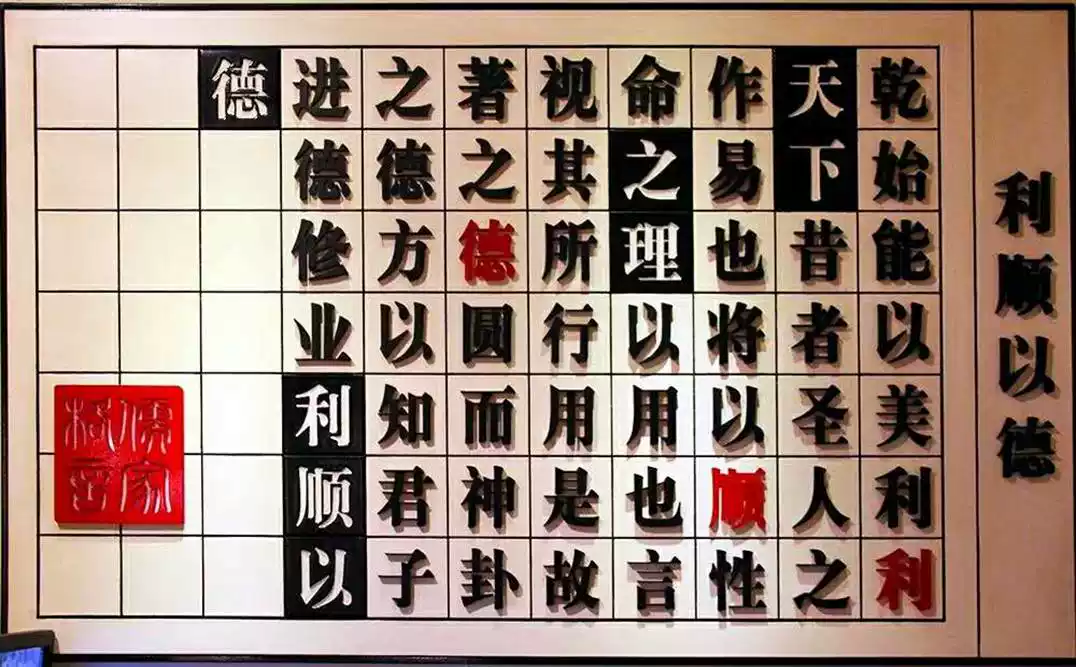 利顺以德
乾始能以美利利
天下昔者圣人之
作易也将以顺性
命之理以用也言
视其所行用是故
著之德圆而神卦
之德方以知君子
进德修业利顺以
德